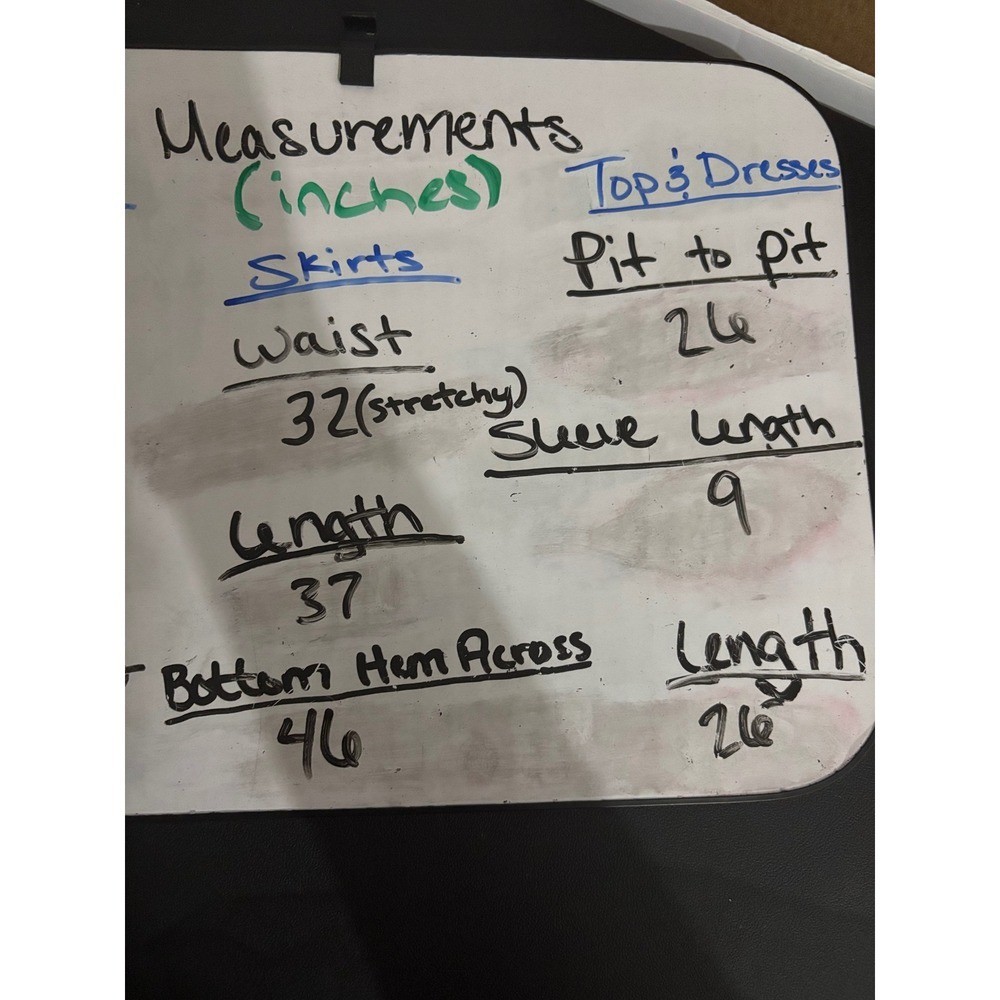 Measurements
(inches)
Skirts
Waist
32 (stretchy)
Length
37
Bottom Hem Across
46
Top & Dresses
Pit to pit
26
Sleeve Length
9
Length
26